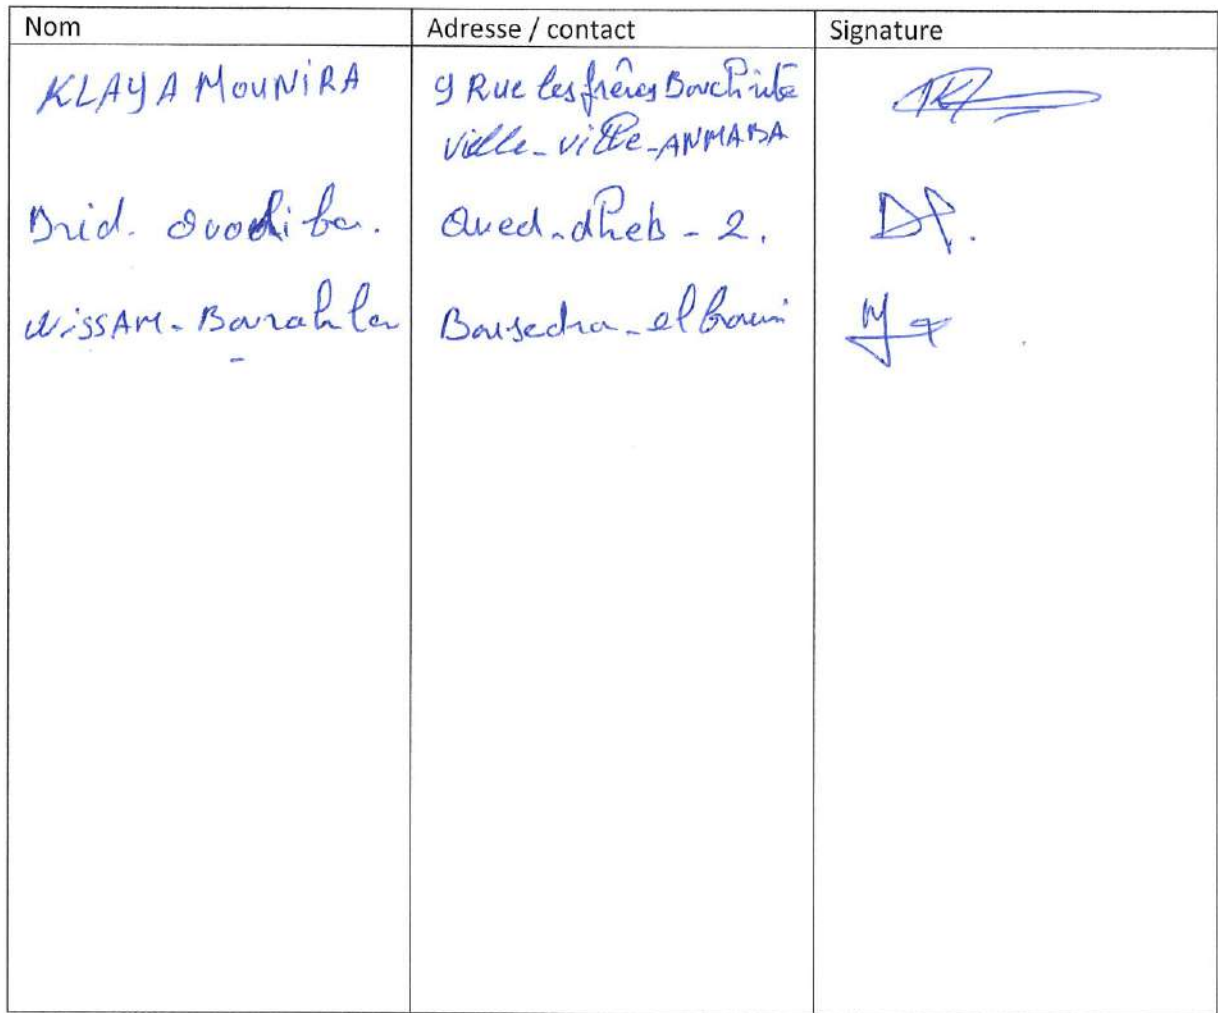 Nom Adresse / contact Signature
KLAYA MOUNIRA 9 Rue les frères
vielle-ville-ANNABA
Brid. Oued-dheb-2.
WISSAM-Bourahla Bousedra-el bouni